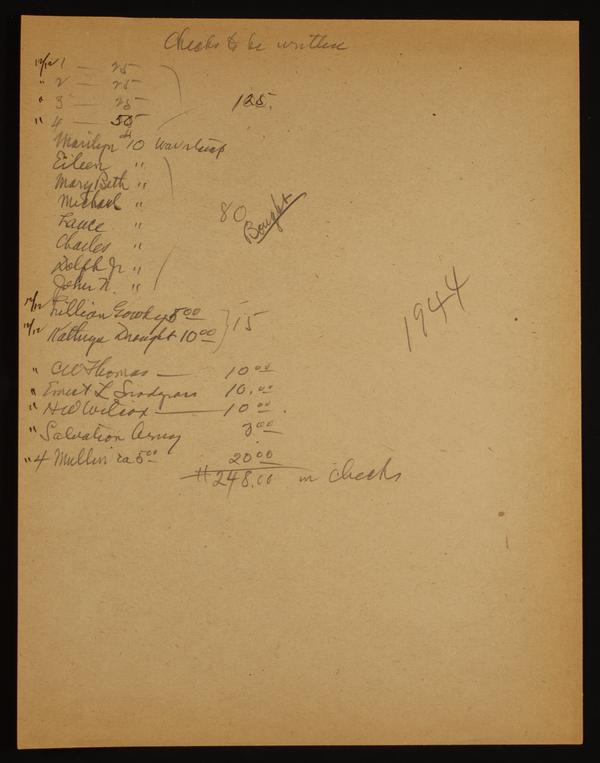 Checks to be written
12/12 1 — 25
" 2 — 25
" 3 — 25
" 4 — 50
125.
Marilyn $10 War stamp
Eileen "
Mary Beth "
Michael "
Lance "
Charles "
Dolph Jr "
John N. "
80
Bought
1944
12/12 Lillian 5 00
12/12 Kathryn 10 00
15
" CW Thomas — 10 00
" Ernest L Snodgrass 10.00
" HW Wilcox — 10 00.
" Salvation Army 3 00
" 4 Mullin ea 5 00 20 00
$248.00 in checks